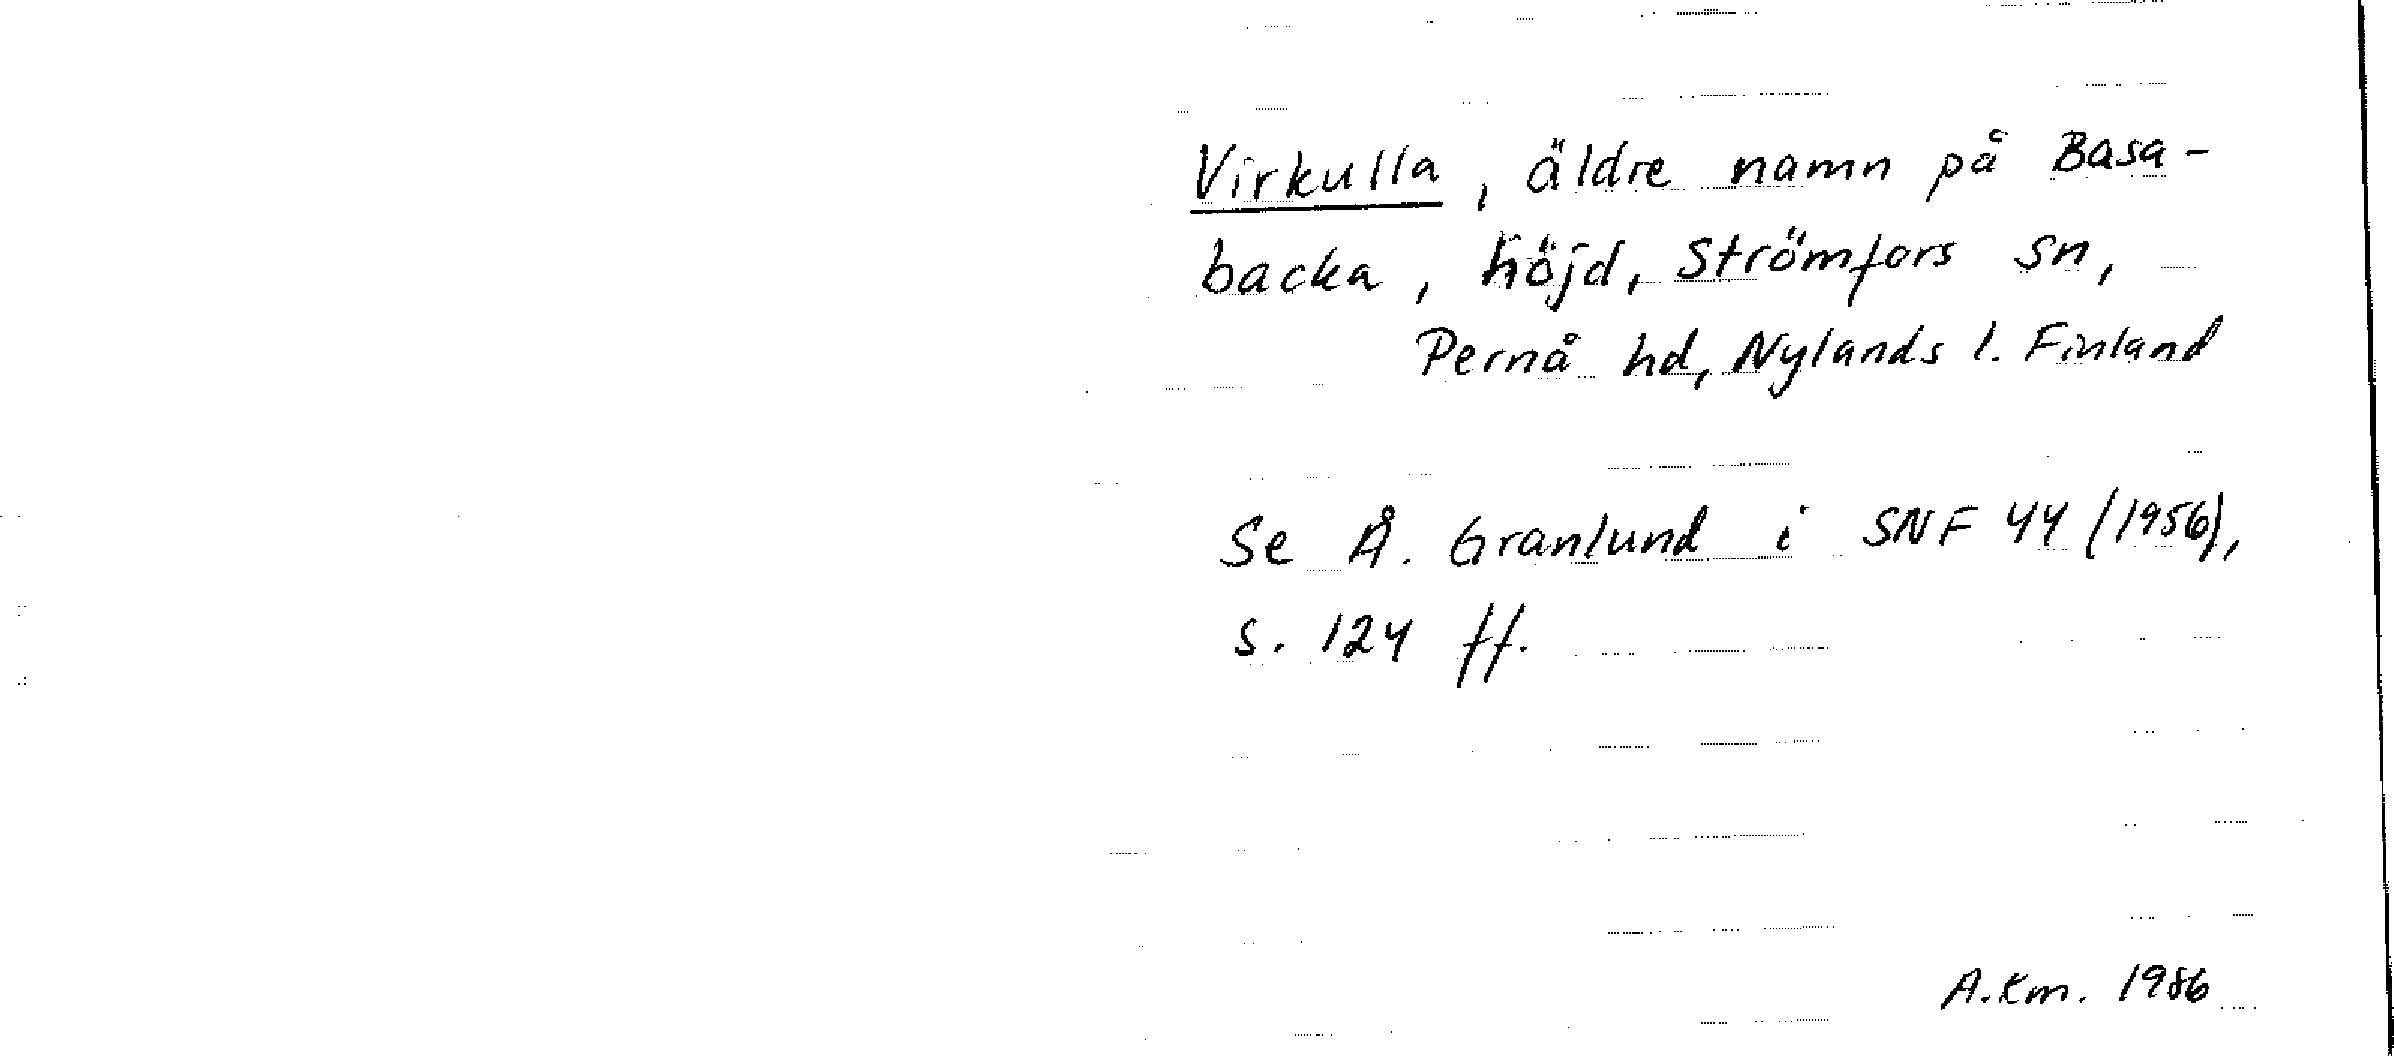 Virkulla, äldre namn på Basa-
backa, höjd, Strömfors sn,
Pernå hd, Nylands l. Finland
Se Å. Granlund i SNF 44 (1956),
s. 124 ff.
A.Km. 1986